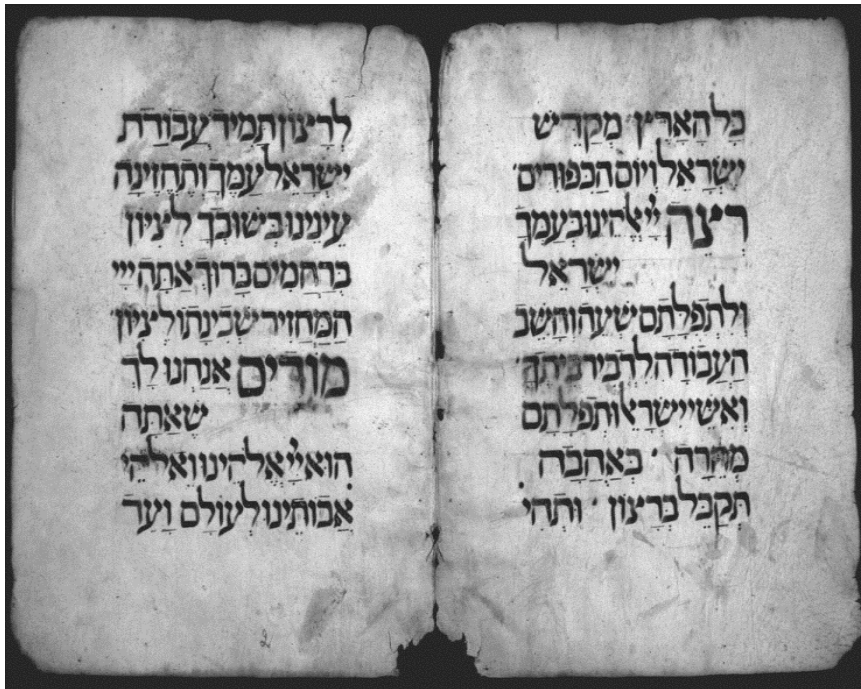 כָּל הָאָרֶץ מְקַדֵּשׁ
יִשְׂרָאֵל וְיוֹם הַכִּפּוּרִים
רְצֵה יְיָ אֱלֹהֵינוּ בְּעַמְּךָ
יִשְׂרָאֵל
וְלִתְפִלָּתָם שְׁעֵה וְהָשֵׁב
הָעֲבוֹדָה לִדְבִיר בֵּיתֶךָ
וְאִשֵּׁי יִשְׂרָאֵ' וּתְפִלָּתָם
מְהֵרָה ׳ בְּאַהֲבָה
תְּקַבֵּל בְּרָצוֹן ׳ וּתְהִי
לְרָצוֹן תָּמִיד עֲבוֹדַת
יִשְׂרָאֵל עַמֶּךָ וְתֶחֱזֶינָה
עֵינֵינוּ בְּשׁוּבְךָ לְצִיּוֹן
בְּרַחֲמִים בָּרוּךְ אַתָּה יְיָ
הַמַּחֲזִיר שְׁכִינָתוֹ לְצִיּוֹן
מוֹדִים אֲנַחְנוּ לָךְ
שֶׁאַתָּה
הוּא יְיָ אֱלֹהֵינוּ וֵאלֹהֵי
אֲבוֹתֵינוּ לְעוֹלָם וָעֶד